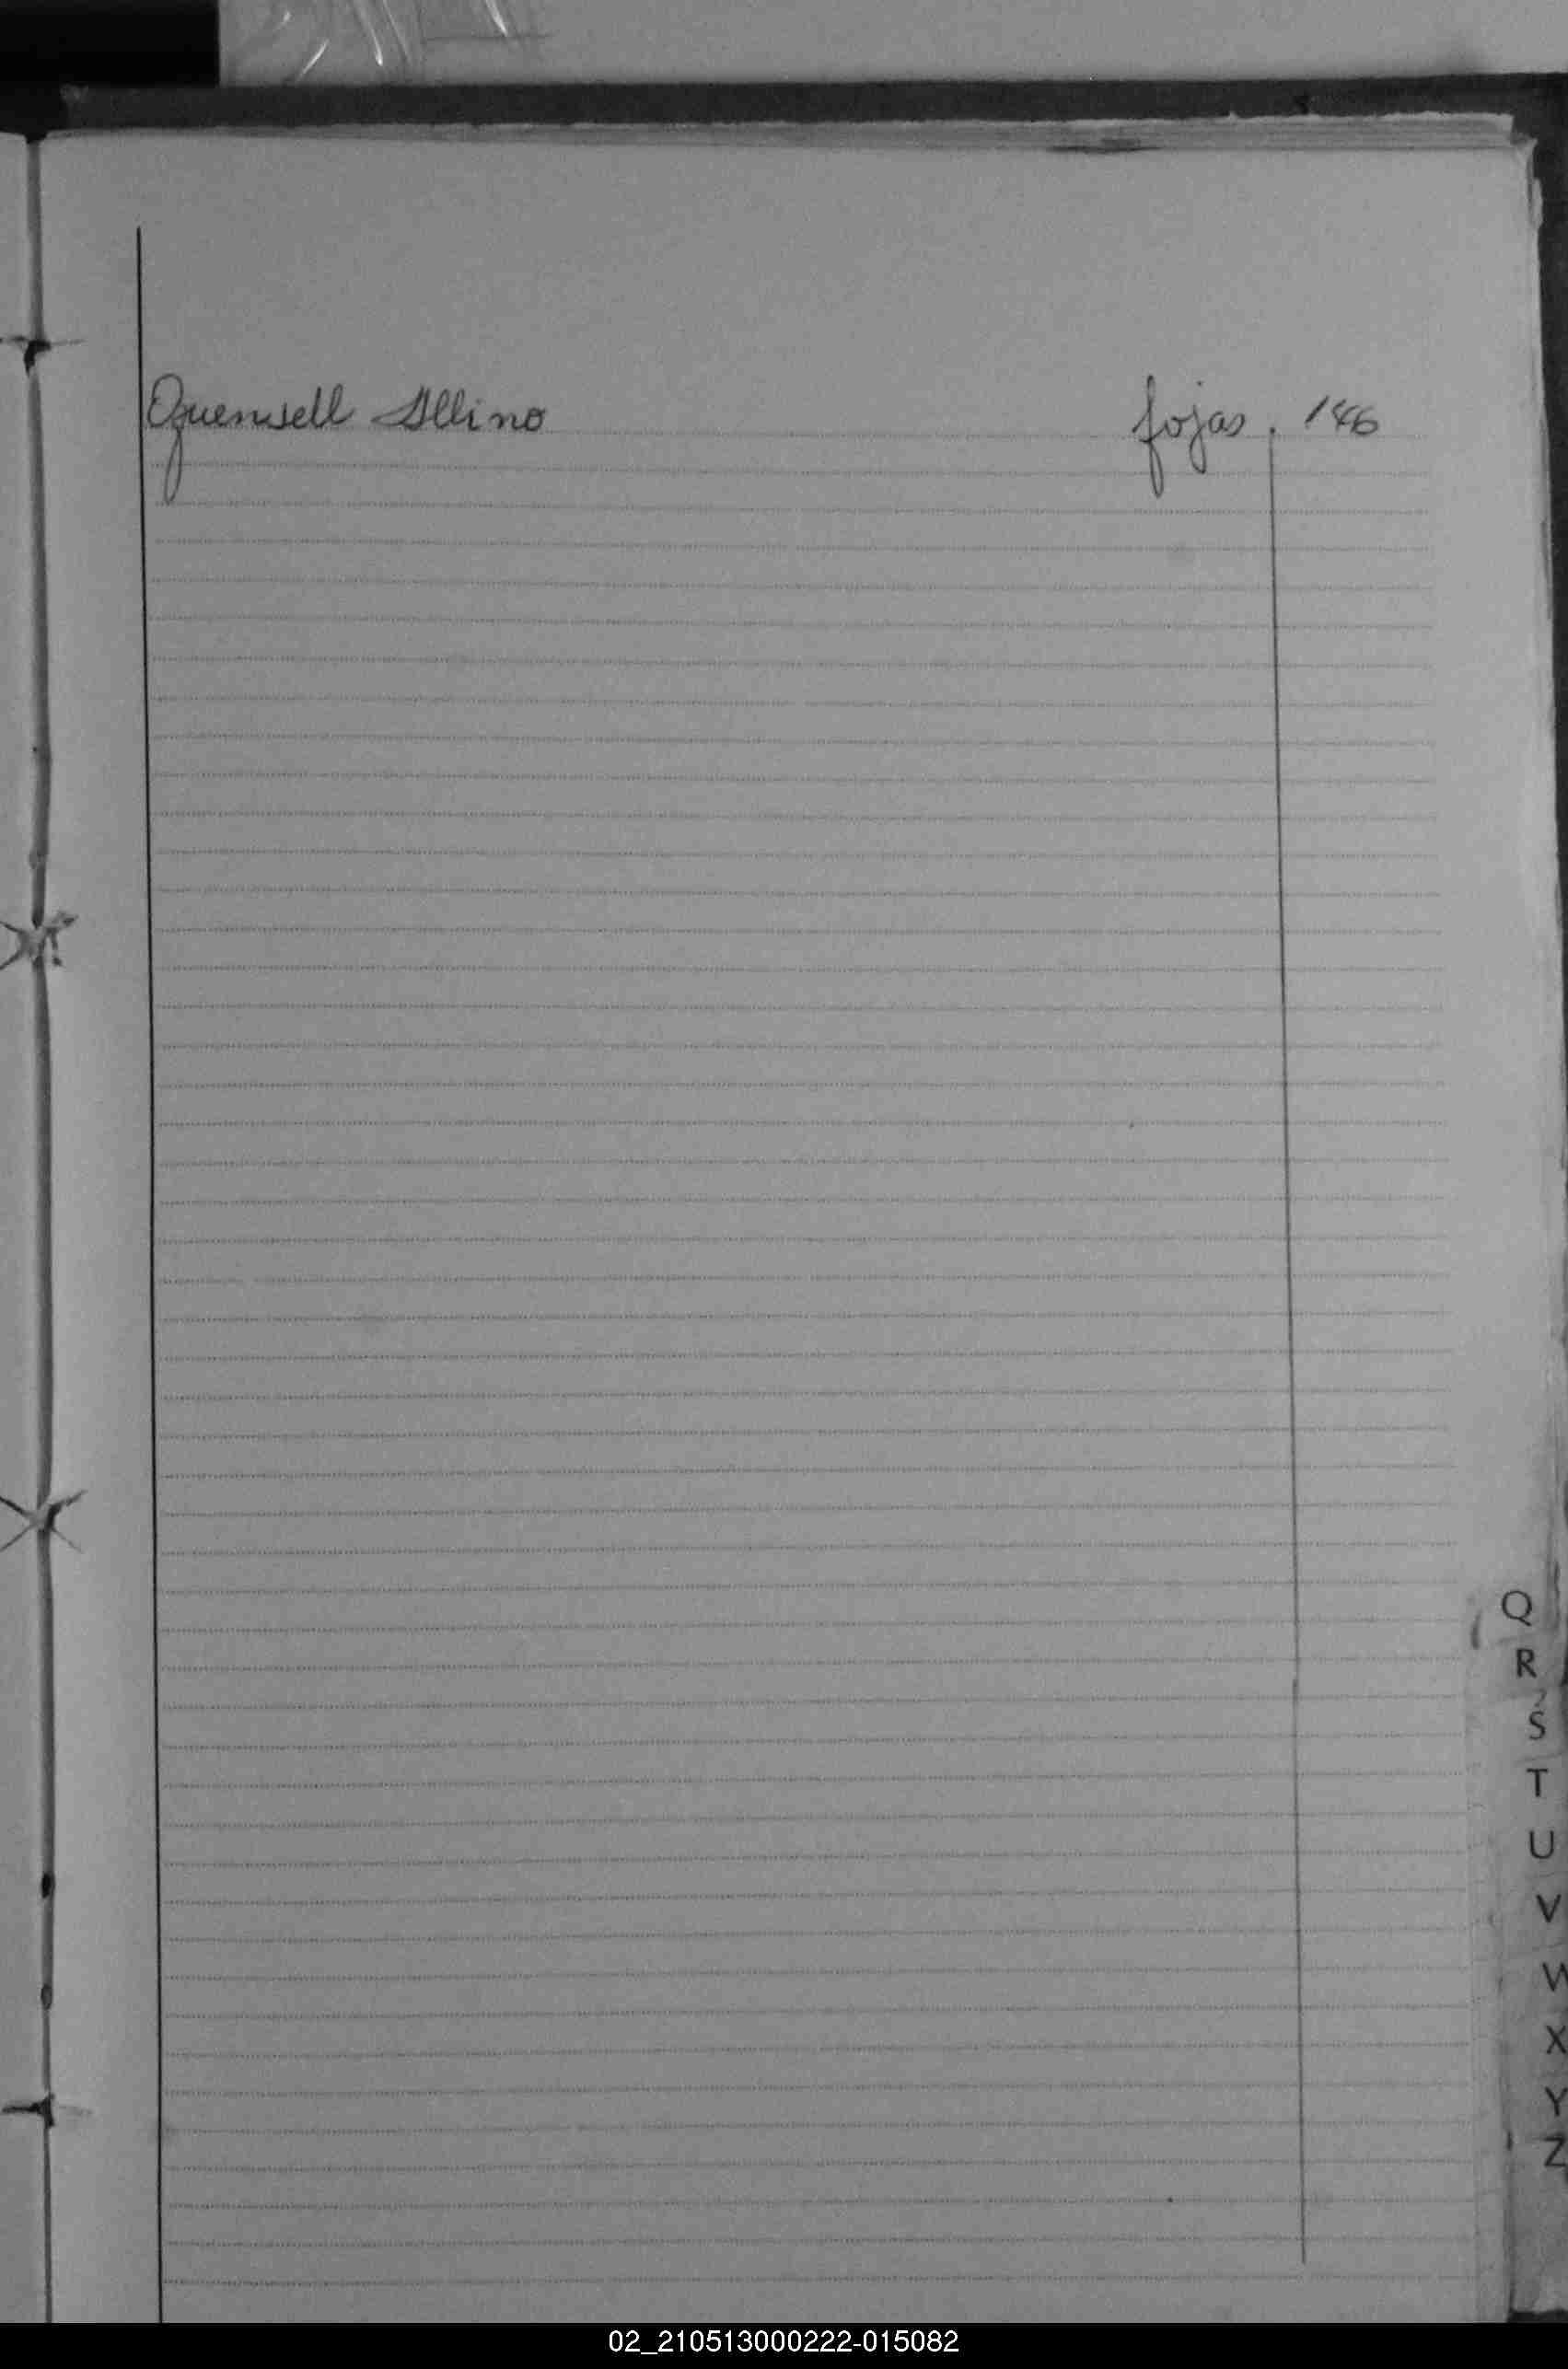 Quensell Allino fojas. 146
Q
R
S
T
U
V
W
X
Y
Z
02_210513000222-015082